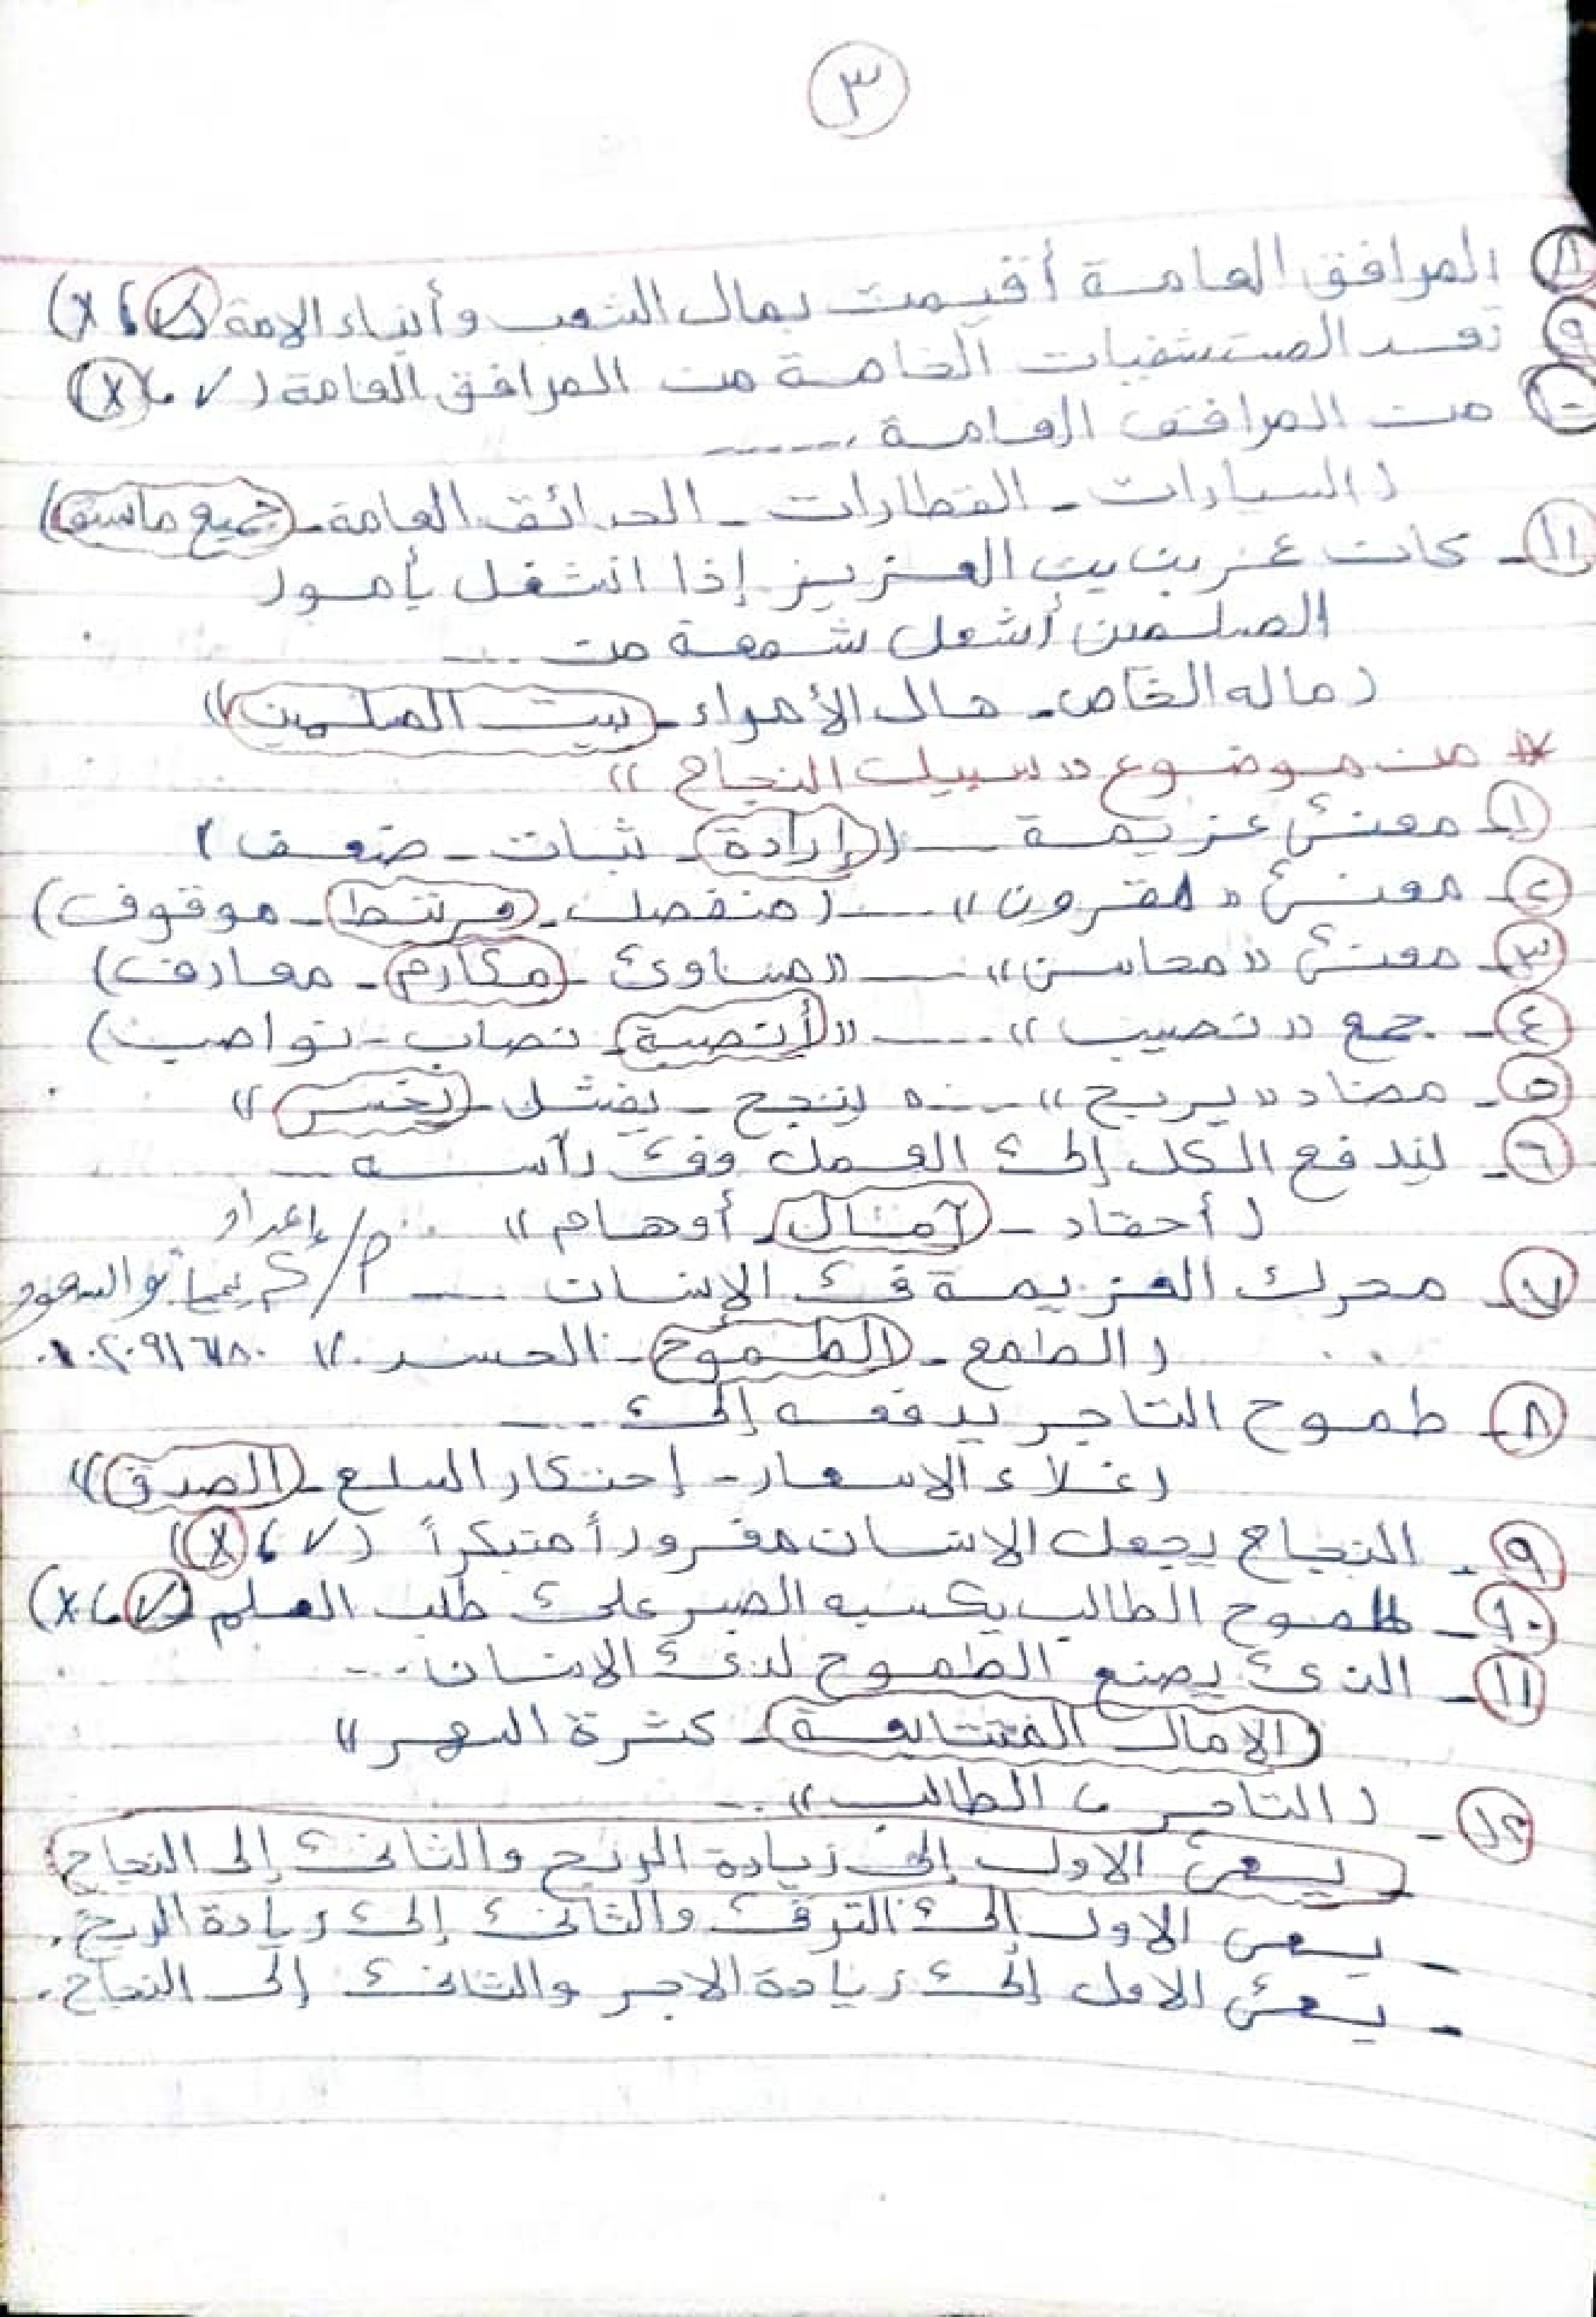 ٣
٨ المرافق العامة أقيمت بمال الشعب وأبناء الامة (✓، x)
٩ تعد المستشفيات الخاصة من المرافق العامة (✓، x)
١٠ من المرافق العامة ......
(السيارات - القطارات - الحدائق العامة - جميع ماسبق)
١١- كان عمر بن عبد العزيز إذا انشغل بأمور
المسلمين أشعل شمعة من ....
(ماله الخاص - مال الأمراء - بيت المسلمين)
* من موضوع «سبيل النجاح»
١- معنى عزيمة ... (إرادة - ثبات - ضعف)
٢- معنى «مقرون» .... (منفصل - مرتبط - موقوف)
٣- معنى «محاسن» .... «مساوئ - مكارم - معارف)
٤- جمع «نصيب» .... «أنصبة - نصاب - نواصب)
٥- مضاد «يربح» .... «ينجح - يفشل - يخسر»
٦- ليندفع الكل إلى العمل وفى رأسه ....
(أحقاد - آمال - أوهام»
إعداد
٧- محرك العزيمة فى الإنسان .... أ/ كريمة أبو السعود
(الطمع - الطموح - الحسد»
٨- طموح التاجر يدفعه إلى ....
(غلاء الاسعار - إحتكار السلع - الصدق»
٩- النجاح يجعل الانسان مغروراً متكبراً (✓، x)
١٠- طموح الطالب يكسبه الصبر على طلب العلم (✓، x)
١١- الذى يصنع الطموح لدى الانسان ...
(الامال المتتابعة - كثرة السهر»
١٢- (التاجر ، الطالب» ....
يسعى الاول إلى زيادة الربح والثانى إلى النجاح
- يسعى الاول إلى الترقى والثانى إلى زيادة الربح.
- يسعى الاول إلى زيادة الاجر والثانى إلى النجاح.